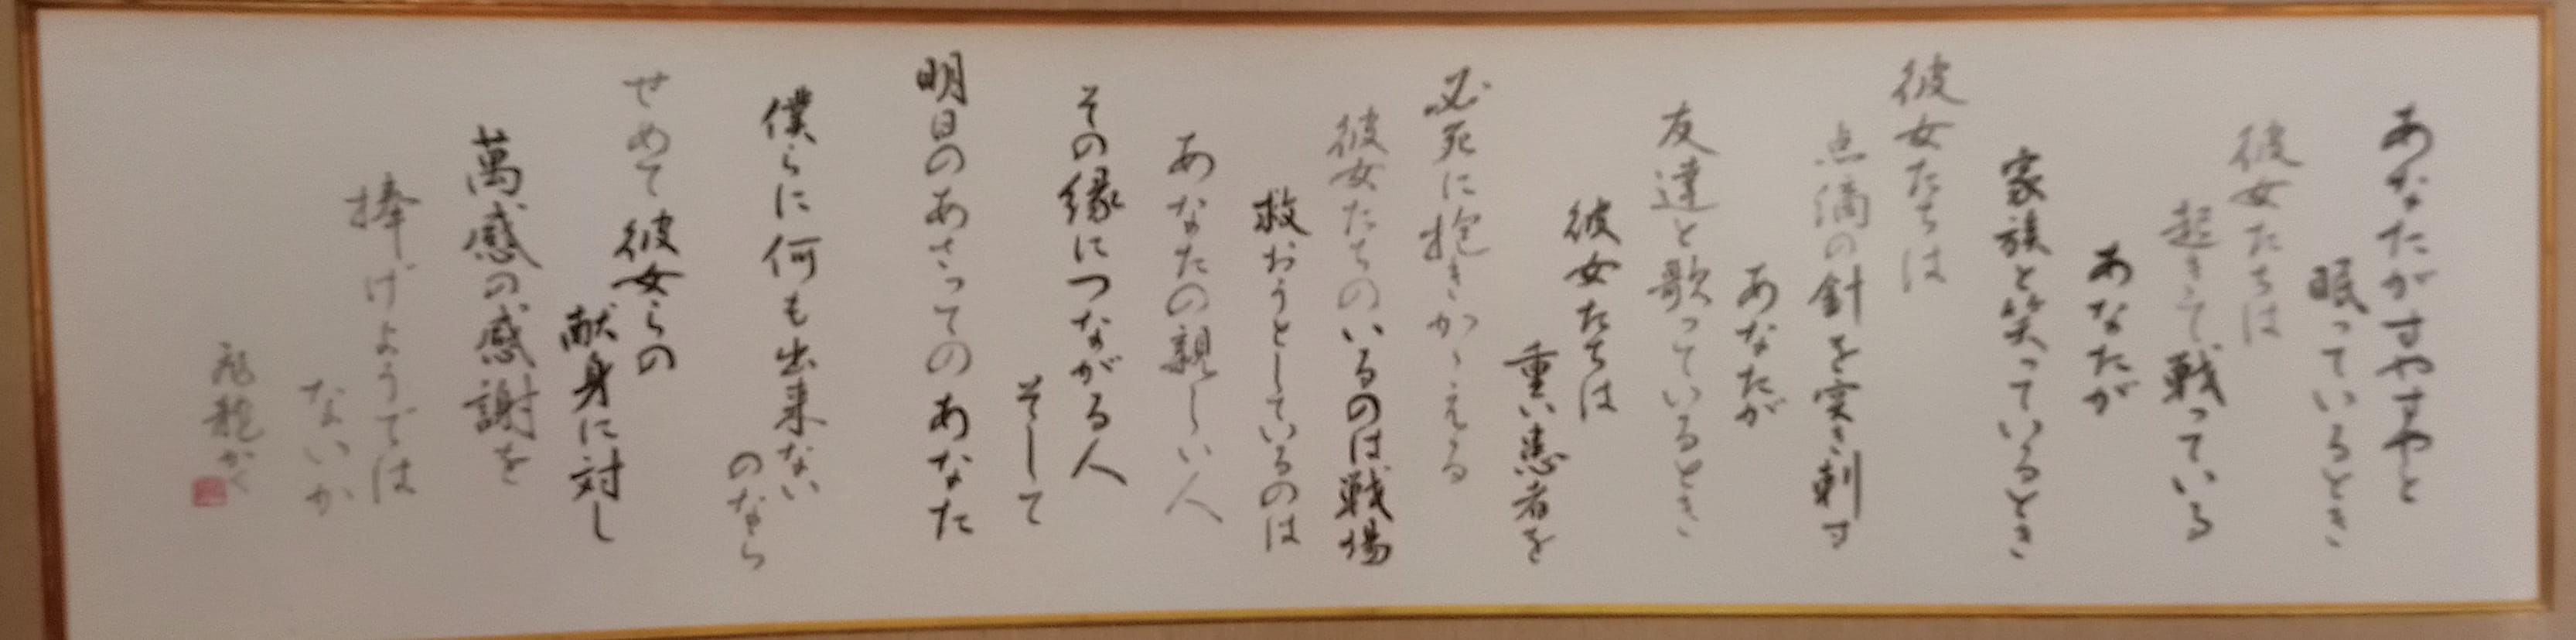 あなたがすやすやと
眠っているとき
彼女たちは
起きて戦っている
あなたが
家族と笑っているとき
彼女たちは
点滴の針を突き刺す
あなたが
友達と歌っているとき
彼女たちは
重い患者を
必死に抱きかゝえる
彼女たちのいるのは戦場
救おうとしているのは
あなたの親しい人
その縁につながる人
そして
明日のあさってのあなた
僕らに何も出来ない
のなら
せめて彼女らの
献身に対し
萬感の感謝を
捧げようでは
ないか
龍かく